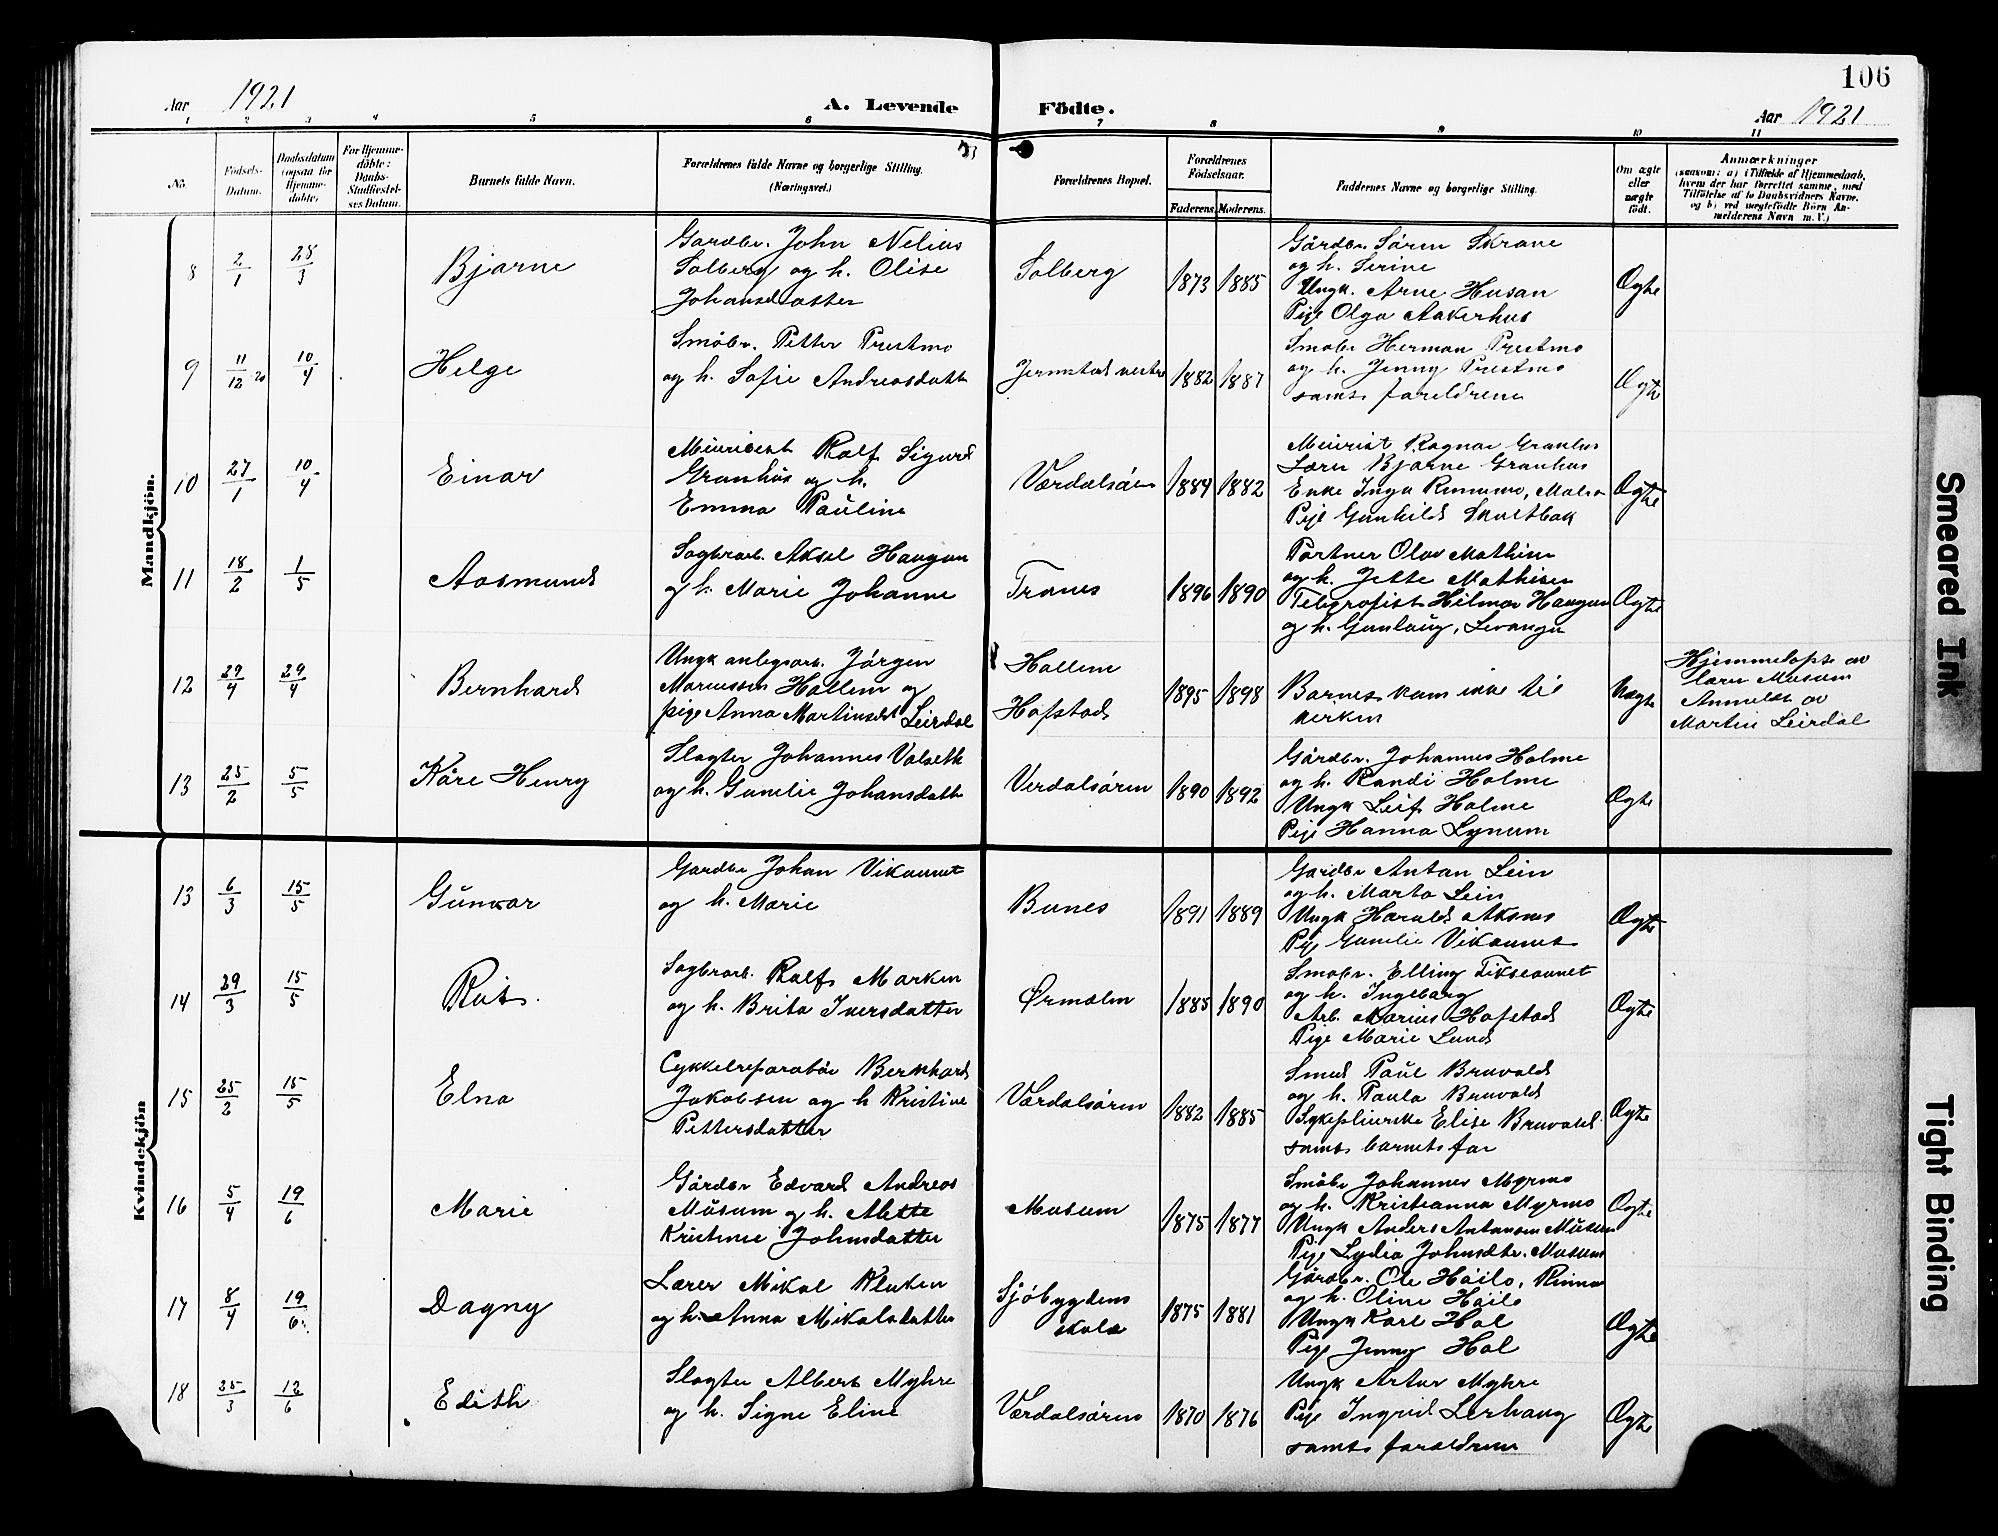 106
Aar 1921
A. Levende Födte.
Aar 1921
1 2 3 4 5 6 7 8 9 10 11
No.
Födsels-
Datum.
Daabsdatum
(ogsaa for
Hjemme-
döbte)
For Hjemme-
döbte:
Daabs-
Stadfæstel-
ses Datum.
Barnets fulde Navn.
Forældrenes fulde Navne og borgerlige Stilling.
(Næringsvei.)
Forældrenes Bopæl.
Forældrenes
Födselsaar.
Faderens. Moderens.
Faddernes Navne og borgerlige Stilling.
Om ægte
eller
uægte
født.
Anmærkninger
(saasom: a) i Tilfælde af Hjemmedaab,
hvem der har forrettet samme, med
Tilföielse af to Daabsvidners Navne,
og b) ved uægtefödte Börn An-
melderens Navn m. V.)
Mandkjön.
8 2/1 28/3 Bjarne
Gardbr. John Nelius
Solberg og h. Olise
Johansdatter
Solberg 1873 1885
Gårdbr Søren Skrove
og h. Serine
Ungk. Arne Husan
Pige Olga Aakerhus
Ægte
9 11/12 20 10/4 Helge
Småbr. Petter Prestmo
og h. Sofie Andreasdatt
Jermstad vestre 1882 1887
Småbr Herman Prestmo
og h. Jenny Prestmo
samt foreldrene
Ægte
10 27/1 10/4 Einar
Rolf Sigurd
Granhus og h.
Emma Pauline
Værdalsøren 1884 1882
Ragnar Granhus
Lærer Bjarne Granhus
Enke Inga
Pige Gunhild
Ægte
11 18/2 1/5 Aasmund
Sagbrarb. Aksel Haugan
og h. Marie Johanne
Trones 1896 1890
Portner Olav Mathisen
og h. Jette Mathisen
Telegrafist Hilmar Haugan
og h. Gunlaug, Levanger
Ægte
12 29/4 29/4 Bernhard
Ungk anlegsarb. Jørgen
Mariussen Hallem og
pige Anna Martinsdt Leirdal
Hallem
Hofstad
1895 1898
Barnet kom ikke til
kirken
Uægte
Hjemmedøpt av
lærer Musum
Anmeldt av
Martin Leirdal
13 25/2 5/5 Kåre Henry
Slagter Johannes Valseth
og h. Gunelie Johansdatt
Verdalsøren 1890 1892
Gårdbr. Johannes Holme
og h. Randi Holme
Ungk Leif Holme
Pige Hanna Lynum
Ægte
Kvindekjön
13 6/3 15/5 Gunvor
Gardbr Johan Vikvannet
og h. Marie
Bunes 1891 1889
Gardbr Anton Lein
og h. Marta Lein
Ungk Harald Aksnes
Pige Gunelie
Ægte
14 29/3 15/5 Rut.
Sagbrarb. Rolf Marken
og h. Brita Iversdatter
Ørmelen 1885 1890
Småbr. Elling
og h. Ingeborg
Arb. Marius Hofstad
Pige Marie Lund
Ægte
15 25/2 15/5 Elna
Cykkelreparatør Bernhard
Jakobsen og h Kristine
Pettersdatter
Værdalsøren 1882 1885
Smed Paul Bruvold
og h. Paula Bruvold
Sykepleierske Elise Bruvold
samt barnets far
Ægte
16 5/4 19/6 Marie
Gårdbr Edvard Andreas
Musum og h. Alette
Kristine Johnsdatter
Musum 1875 1877
Småbr Johannes Myrmo
og h. Kristianna Myrmo
Ungk Anders Antonsen Musum
Pige Lydia Johnsdtr. Musum
Ægte
17 8/4 19/6 Dagny
Lærer Mikal Kluken
og h. Anna Mikalsdatter
Sjøbygdens
skole
1875 1881
Gårdbr. Ole Høilo, Rinna
og h. Oline Høilo
Ungk Karl Hol
Pige Jenny Hol
Ægte
18 25/3 12/6 Edith
Slagter Albert Myhre
og h. Signe Eline
Værdalsøren 1870 1876
Ungk Artur Myhre
Pige Ingrid Lerhaug
samt foreldrene
Ægte
Smeared Ink
Tight Binding